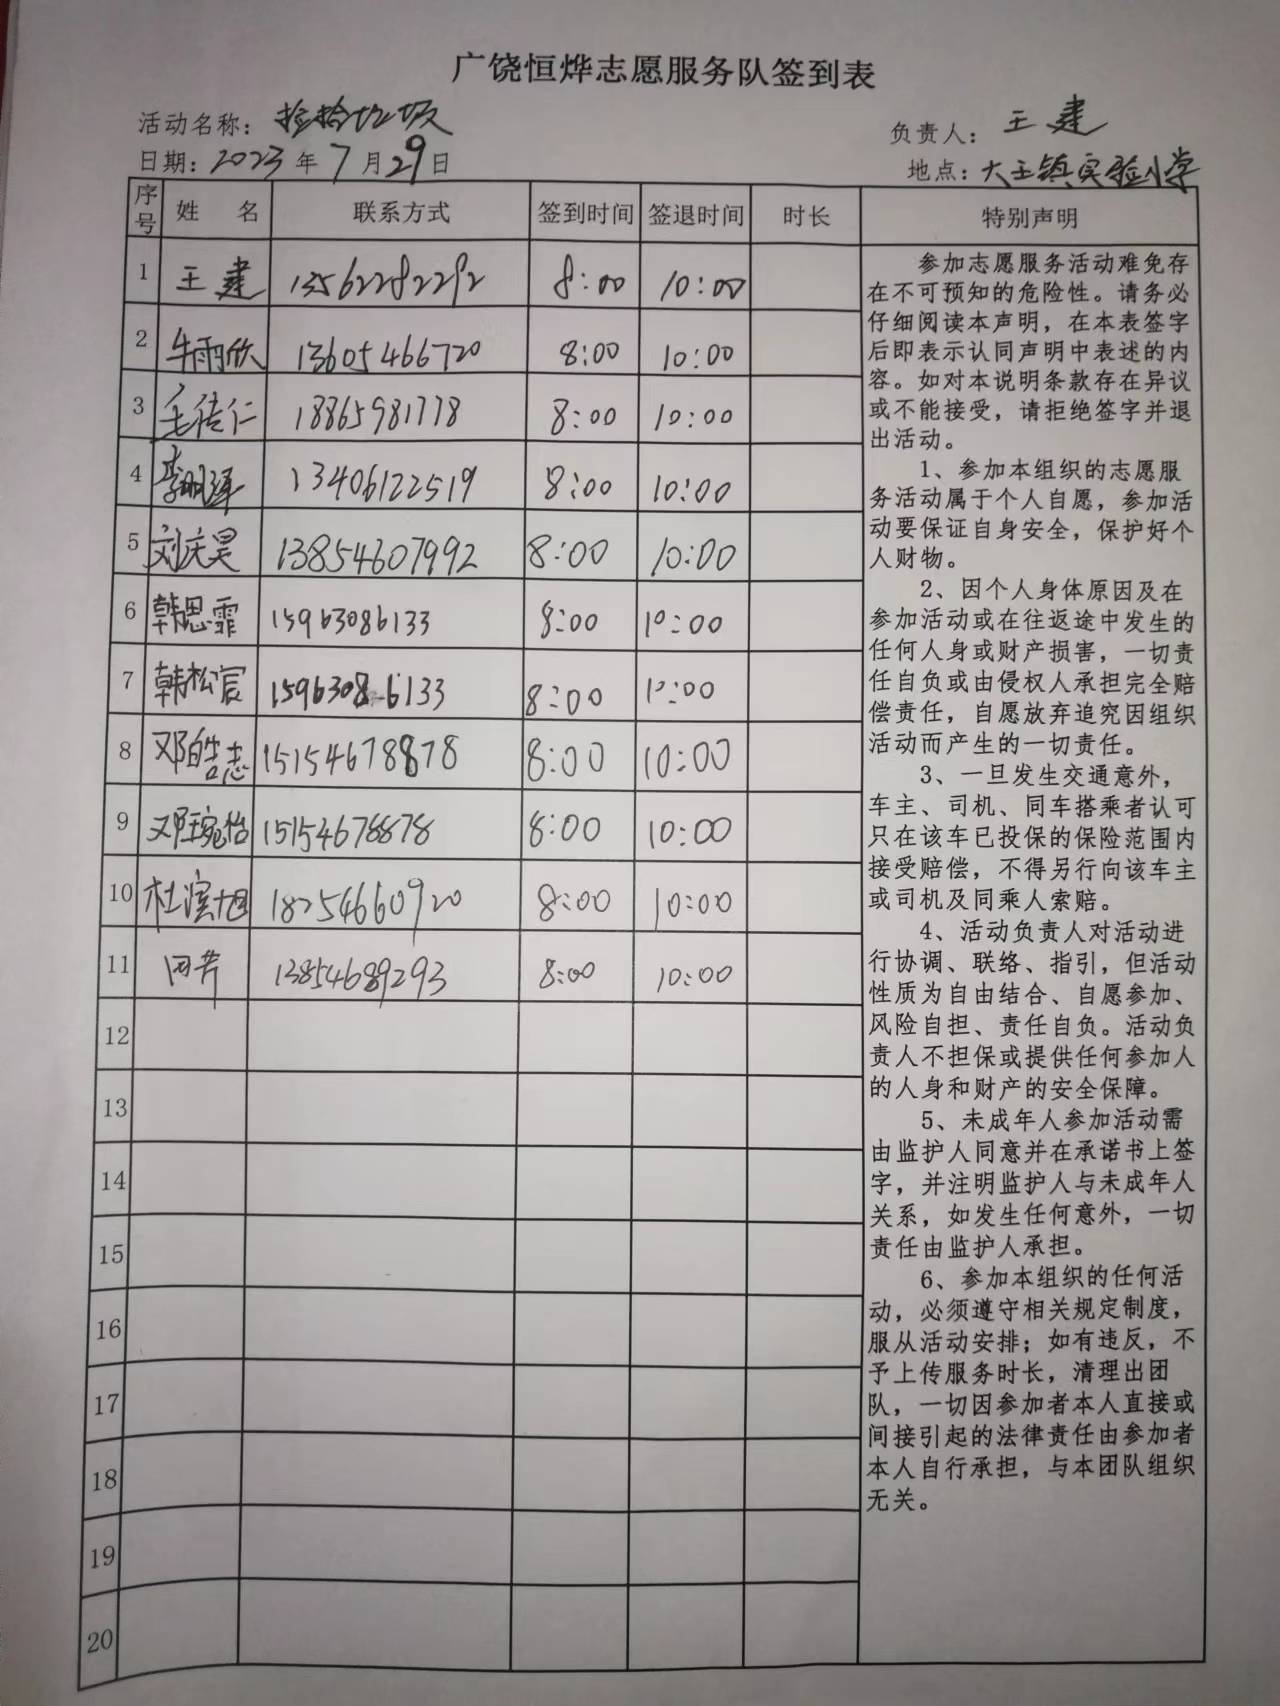 广饶恒烨志愿服务队签到表
活动名称：捡拾垃圾 负责人：王建
日期：2023年7月29日 地点：大王镇实验小学
序号 姓名 联系方式 签到时间 签退时间 时长 特别声明
1 王建 13562282292 8:00 10:00
2 牛雨欣 13605466720 8:00 10:00
3 毛传仁 18865981778 8:00 10:00
4 13406122519 8:00 10:00
5 刘庆昊 13854607992 8:00 10:00
6 韩思霏 15963086133 8:00 10:00
7 韩松宸 15963086133 8:00 10:00
8 邓皓志 15154678878 8:00 10:00
9 邓琬怡 15154678878 8:00 10:00
10 杜滨旭 18254660920 8:00 10:00
11 13854689293 8:00 10:00
12
13
14
15
16
17
18
19
20
参加志愿服务活动难免存
在不可预知的危险性。请务必
仔细阅读本声明，在本表签字
后即表示认同声明中表述的内
容。如对本说明条款存在异议
或不能接受，请拒绝签字并退
出活动。
1、参加本组织的志愿服
务活动属于个人自愿，参加活
动要保证自身安全，保护好个
人财物。
2、因个人身体原因及在
参加活动或在往返途中发生的
任何人身或财产损害，一切责
任自负或由侵权人承担完全赔
偿责任，自愿放弃追究因组织
活动而产生的一切责任。
3、一旦发生交通意外，
车主、司机、同车搭乘者认可
只在该车已投保的保险范围内
接受赔偿，不得另行向该车主
或司机及同乘人索赔。
4、活动负责人对活动进
行协调、联络、指引，但活动
性质为自由结合、自愿参加、
风险自担、责任自负。活动负
责人不担保或提供任何参加人
的人身和财产的安全保障。
5、未成年人参加活动需
由监护人同意并在承诺书上签
字，并注明监护人与未成年人
关系，如发生任何意外，一切
责任由监护人承担。
6、参加本组织的任何活
动，必须遵守相关规定制度，
服从活动安排；如有违反，不
予上传服务时长，清理出团
队，一切因参加者本人直接或
间接引起的法律责任由参加者
本人自行承担，与本团队组织
无关。